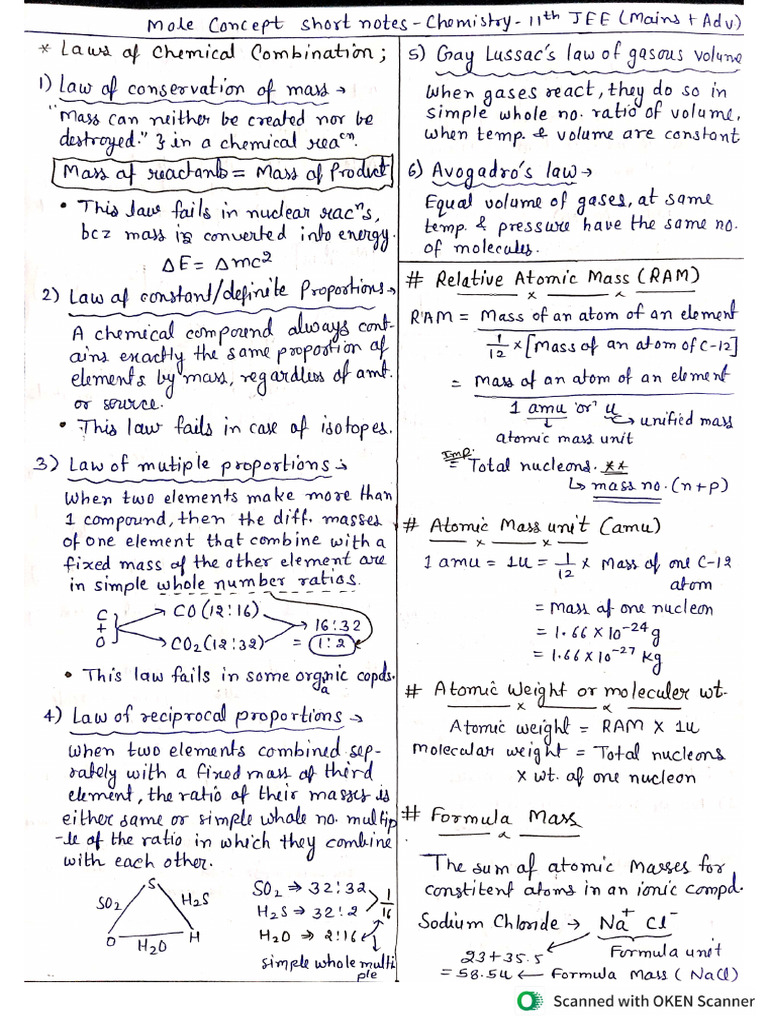 Mole Concept short notes - Chemistry - 11th JEE (Mains + Adv)
* Laws of Chemical Combination;
1) Law of conservation of mass →
"Mass can neither be created nor be
destroyed." } in a chemical reacⁿ.
Mass of reactants = Mass of Product
• This law fails in nuclear reacⁿs,
bcz mass is converted into energy.
ΔE = Δmc²
2) Law of constand/definite Proportions →
A chemical compound always cont-
ains exactly the same proportion of
elements by mass, regardless of amt.
or source.
• This law fails in case of isotopes.
3) Law of mutiple proportions :
When two elements make more than
1 compound, then the diff. masses
of one element that combine with a
fixed mass of the other element are
in simple whole number ratios.
C + O } → CO (12:16)
→ CO₂ (12:32)
→ 16:32
= 1:2
• This law fails in some orgnic copds.
a
4) Law of reciprocal proportions →
When two elements combined sep-
rately with a fixed mass of third
element, the ratio of their masses is
either same or simple whole no. multip
-le of the ratio in which they combine
with each other.
S
SO₂ H₂S
O H₂O H
SO₂ → 32:32
H₂S → 32:2
1/16
H₂O → 2:16
simple whole multi
ple
5) Gay Lussac's law of gasous volume
When gases react, they do so in
simple whole no. ratio of volume,
when temp. & volume are constant
6) Avogadro's law →
Equal volume of gases, at same
temp. & pressure have the same no.
of molecules.
# Relative Atomic Mass (RAM)
RAM = Mass of an atom of an element
1/12 × [Mass of an atom of C-12]
= Mass of an atom of an element
1 amu 'or' u → unified mass
atomic mass unit
Imp.
= Total nucleons. **
↳ mass no. (n+p)
# Atomic Mass unit (amu)
1 amu = 1u = 1/12 × Mass of one C-12
atom
= Mass of one nucleon
= 1.66 × 10⁻²⁴ g
= 1.66 × 10⁻²⁷ kg
# Atomic Weight or moleculer wt.
Atomic weight = RAM × 1u
Molecular weight = Total nucleons
× wt. of one nucleon
# Formula Mass
The sum of atomic masses for
constitent atoms in an ionic compd.
Sodium Chloride → Na⁺ Cl⁻
23 + 35.5 Formula unit
= 58.5u ← Formula Mass (NaCl)
Scanned with OKEN Scanner